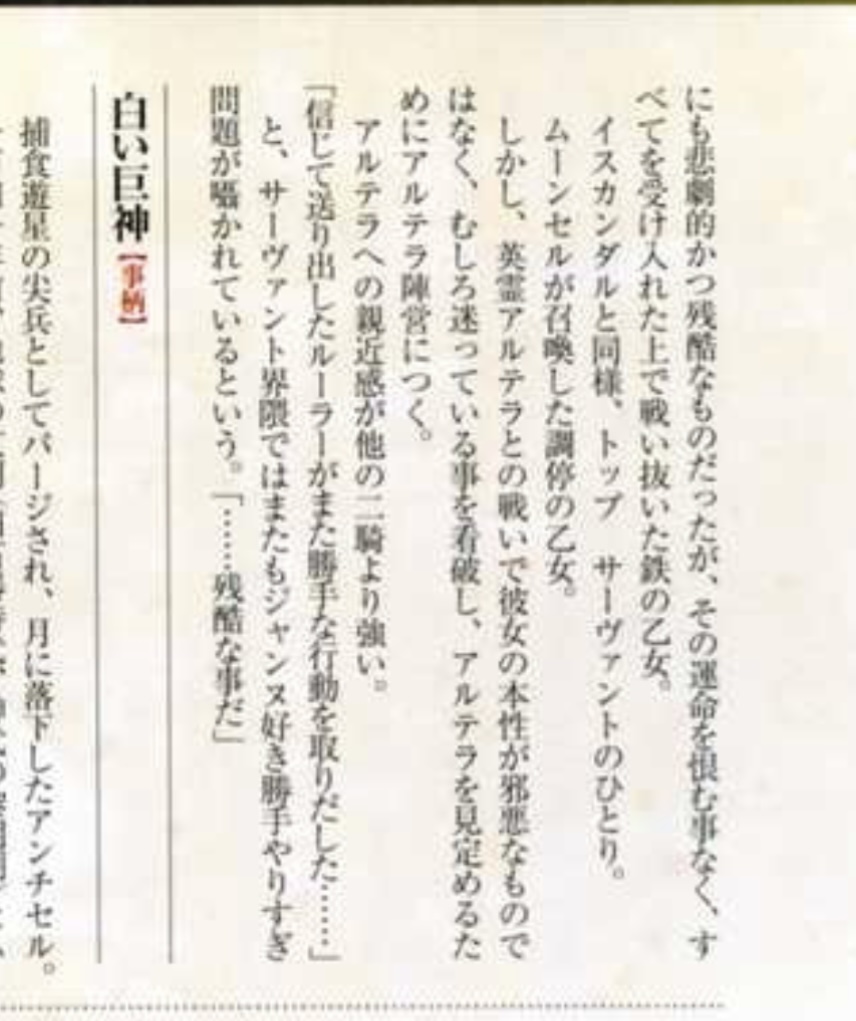 にも悲劇的かつ残酷なものだったが、その運命を恨む事なく、す
べてを受け入れた上で戦い抜いた鉄の乙女。
イスカンダルと同様、トップ サーヴァントのひとり。
ムーンセルが召喚した調停の乙女。
しかし、英霊アルテラとの戦いで彼女の本性が邪悪なもので
はなく、むしろ迷っている事を看破し、アルテラを見定めるた
めにアルテラ陣営につく。
アルテラへの親近感が他の二騎より強い。
「信じて送り出したルーラーがまた勝手な行動を取りだした……」
と、サーヴァント界隈ではまたもジャンヌ好き勝手やりすぎ
問題が囁かれているという。「……残酷な事だ」
白い巨神【事柄】
捕食遊星の尖兵としてパージされ、月に落下したアンチセル。